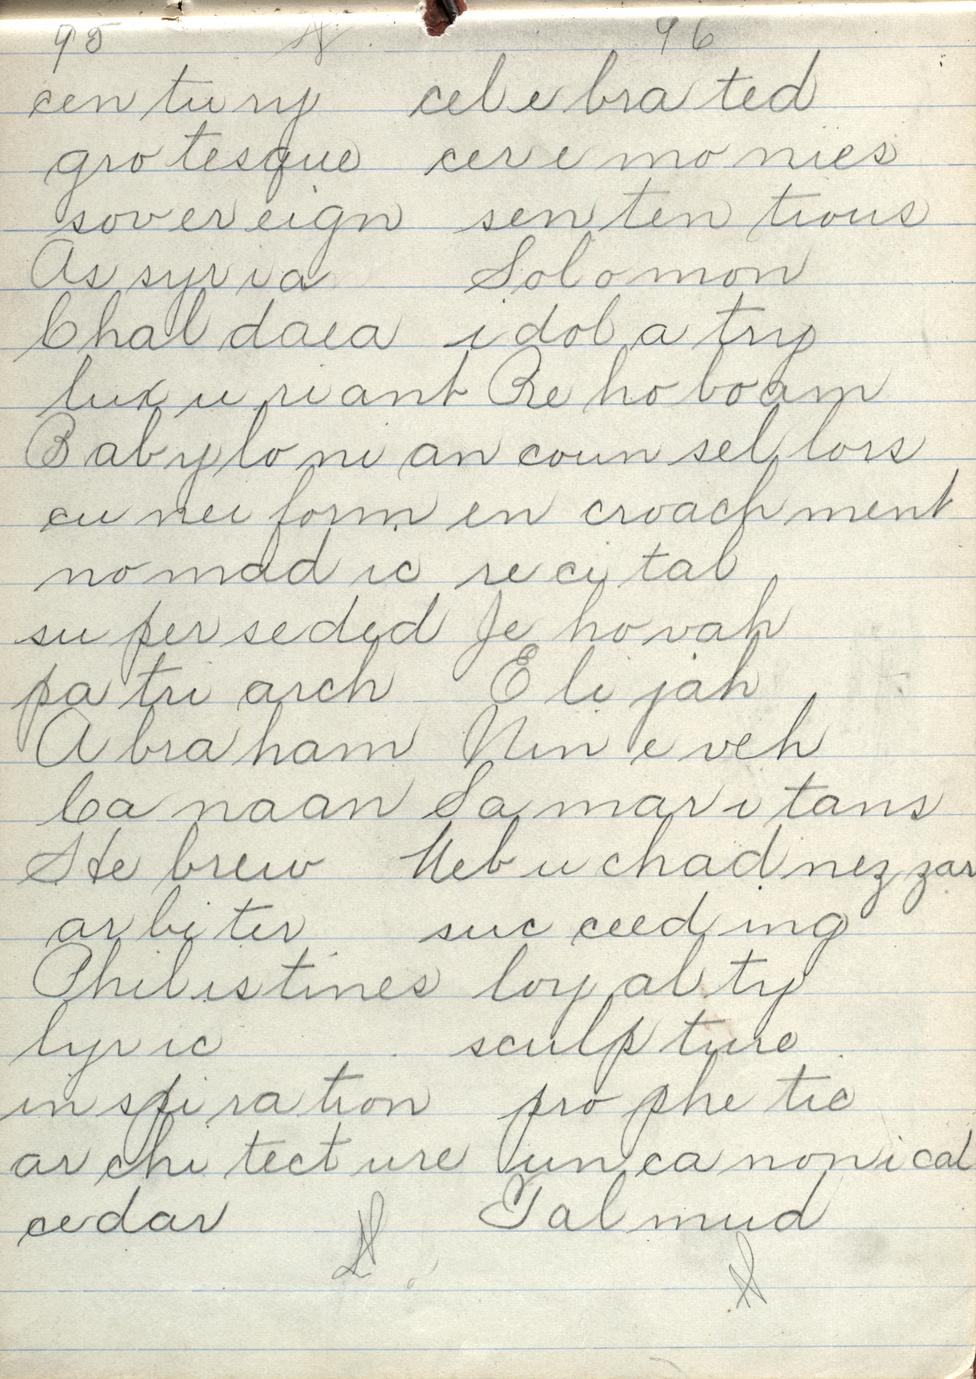 95 96
cen tu ry cel e bra ted
gro tesque cer e mo nies
sov er eign sen ten tious
As syr i a Sol o mon
Chal daea i dol a try
lux u ri ant Re ho boam
Bab y lo ni an coun sel lors
cu nei form en croach ment
no mad ic re ci tal
su per seded Je ho vah
pa tri arch E li jah
A bra ham Nin e veh
Ca naan Sa mar i tans
He brew Neb u chad nez zar
ar bi ter suc ceed ing
Phil is tines loy al ty
lyr ic sculp ture
in spi ra tion pro phe tic
ar chi tect ure un ca non i cal
ce dar Tal mud